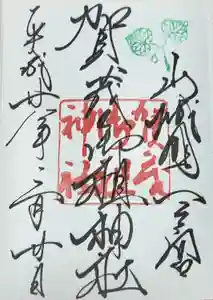 山城國一宮
賀茂御祖神社
賀茂御祖神社
平成廿八年二月廿日